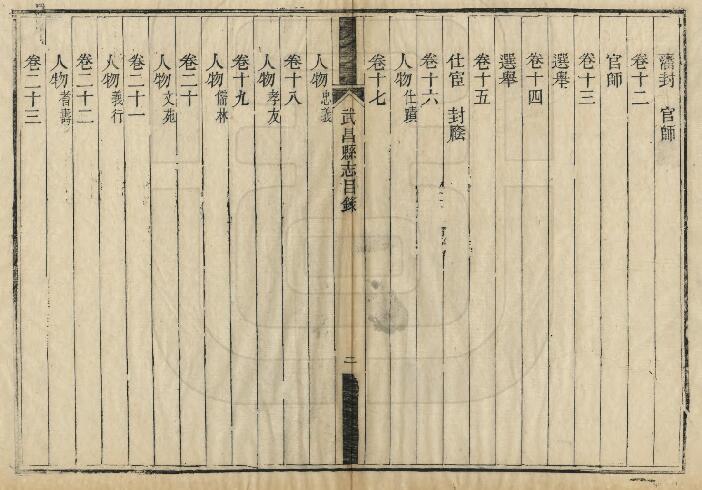 藩封　官師
卷十二
官師
卷十三
選舉
卷十四
選舉
卷十五
仕宦　封廕
卷十六
人物仕蹟
卷十七
武昌縣志目錄
二
人物忠義
卷十八
人物孝友
卷十九
人物儒林
卷二十
人物文苑
卷二十一
人物義行
卷二十二
人物耆壽
卷二十三